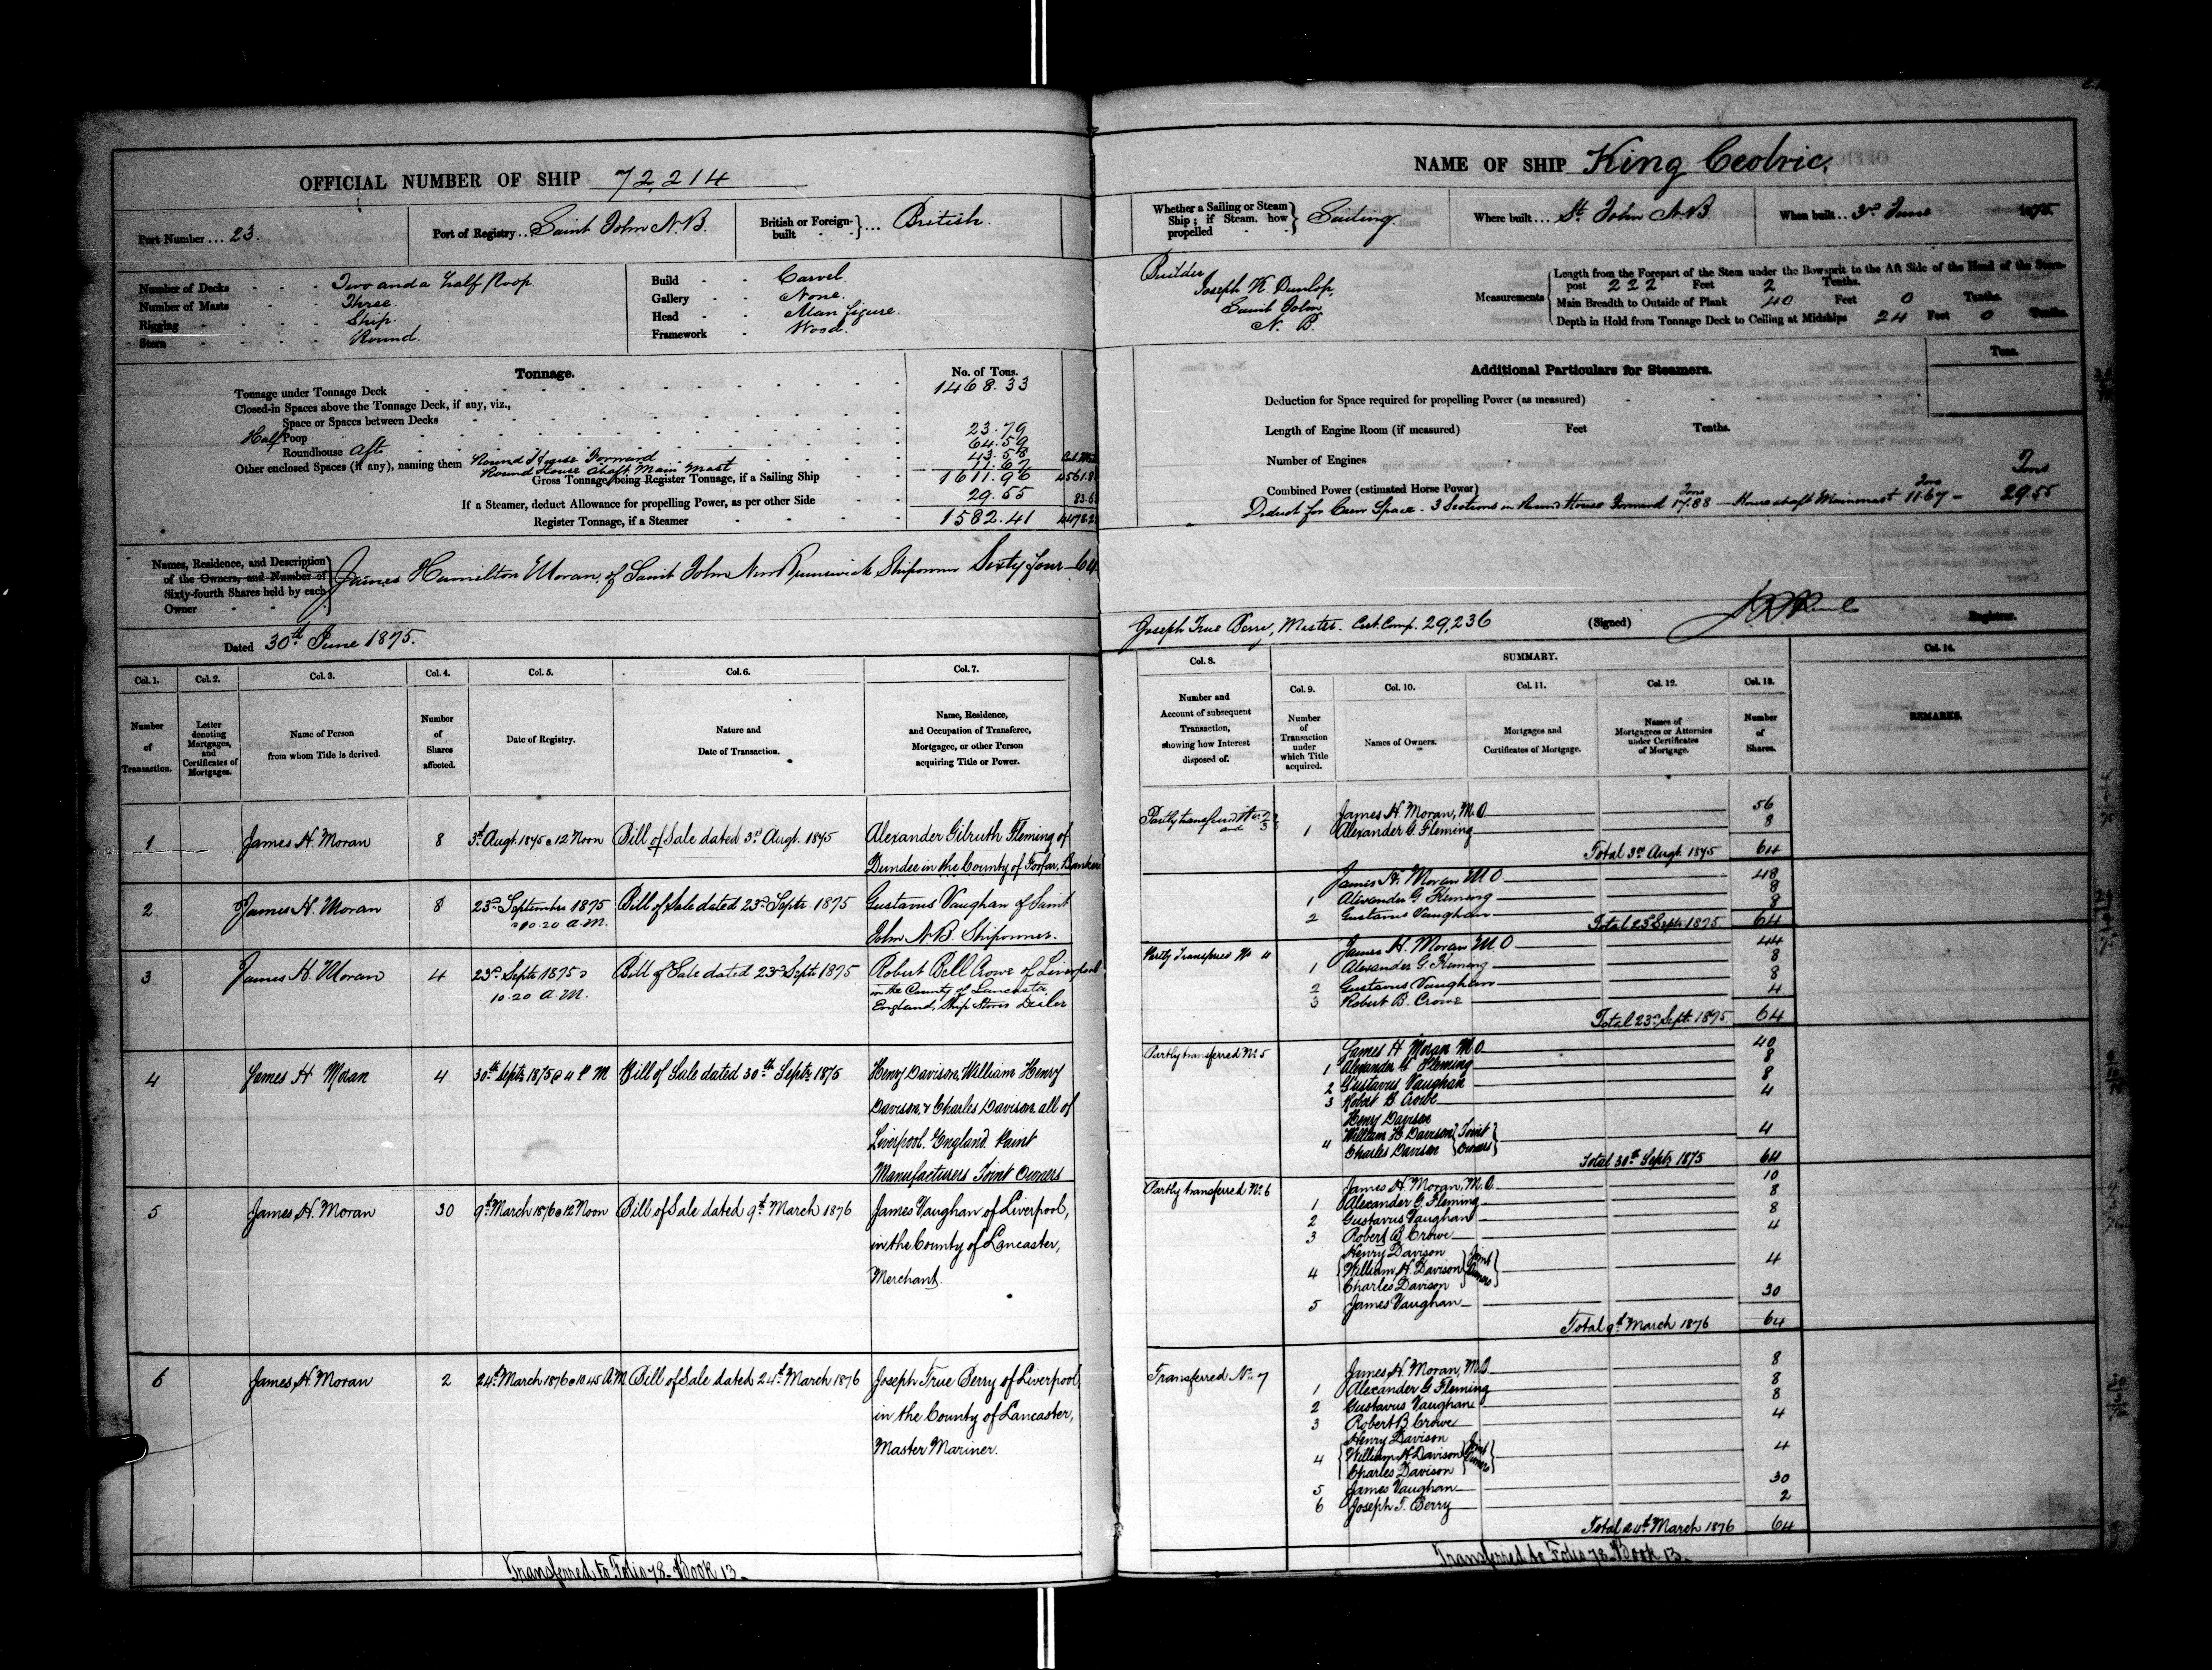 OFFICIAL NUMBER OF SHIP 72,214
Port Number ... 23.
Port of Registry .. Saint John N.B.
British or Foreign-built } ... British.
Number of Decks - - - Two and a half Poop.
Number of Masts - - - Three.
Rigging - - - Ship.
Stern - - - Round.
Build - - Carvel.
Gallery - - None.
Head - - Man figure.
Framework - Wood.
Tonnage.
No. of Tons.
Tonnage under Tonnage Deck 1468.33
Closed-in Spaces above the Tonnage Deck, if any, viz.,
Space or Spaces between Decks
Half Poop 23.79
Roundhouse aft 64.59
Other enclosed Spaces (if any), naming them Round House Forward 43.58
Round House abaft Main Mast 11.67
Gross Tonnage being Register Tonnage, if a Sailing Ship 1611.96
If a Steamer, deduct Allowance for propelling Power, as per other Side 29.55
Register Tonnage, if a Steamer 1582.41
Names, Residence, and Description of the Owners, and Number of Sixty-fourth Shares held by each Owner } James Hamilton Moran, of Saint John New Brunswick Shipowner Sixty four — 64
Dated 30th June 1875.
Col. 1. Col. 2. Col. 3. Col. 4. Col. 5. Col. 6. Col. 7.
Number of Transaction.
Letter denoting Mortgages, and Certificates of Mortgages.
Name of Person from whom Title is derived.
Number of Shares affected.
Date of Registry.
Nature and Date of Transaction.
Name, Residence, and Occupation of Transferee, Mortgagee, or other Person acquiring Title or Power.
1 James H. Moran 8 3d Augt. 1875 @ 12 Noon Bill of Sale dated 3rd Augt. 1875 Alexander Gilruth Fleming of
Dundee in the County of Forfar, Banker
2 James H. Moran 8 23rd September 1875 Bill of Sale dated 23rd Septr. 1875 Gustavus Vaughan of Saint
@ 10.20 A.M. John N.B. Shipowner.
3 James H. Moran 4 23rd Septr 1875 @ Bill of Sale dated 23rd Septr 1875 Robert Bell Crowe of Liverpool
10.20 A.M. in the County of Lancaster
England, Ship Stores Dealer
4 James H Moran 4 30th Septr 1875 @ 4 P M Bill of Sale dated 30th Septr 1875 Henry Davison, William Henry
Davison & Charles Davison all of
Liverpool. England. Paint
Manufacturers Joint Owners
5 James H. Moran 30 9th March 1876 @ 12 Noon Bill of Sale dated 9th March 1876 James Vaughan of Liverpool,
in the County of Lancaster,
Merchant.
6 James H. Moran 2 24th March 1876 @ 10.45 A.M. Bill of Sale dated 24th March 1876 Joseph True Berry of Liverpool,
in the County of Lancaster,
Master Mariner.
Transferred to Folio 78 - Book 13 -
NAME OF SHIP King Ceolric.
Whether a Sailing or Steam Ship; if Steam, how propelled } Sailing.
Where built ... St. John N.B.
When built ... 3rd June 1875.
Builder
Joseph K. Dunlop,
Saint John,
N. B.
Measurements
Length from the Forepart of the Stem under the Bowsprit to the Aft Side of the Head of the Stern-
post 222 Feet 2 Tenths.
Main Breadth to Outside of Plank 40 Feet 0 Tenths.
Depth in Hold from Tonnage Deck to Ceiling at Midships 24 Feet 0 Tenths.
Additional Particulars for Steamers.
Tons.
Deduction for Space required for propelling Power (as measured)
Length of Engine Room (if measured) Feet Tenths.
Number of Engines
Combined Power (estimated Horse Power)
Deduct for Crew Space - 3 Sections in Round House Forward Tons 17.88 — House abaft Mainmast Tons 11.67 — Tons 29.55
Joseph True Berry, Master. Cert. Comp. 29,236
(Signed) Registrar.
Col. 8. SUMMARY. Col. 14.
Col. 9. Col. 10. Col. 11. Col. 12. Col. 13.
Number and Account of subsequent Transaction, showing how Interest disposed of.
Number of Transaction under which Title acquired.
Names of Owners.
Mortgages and Certificates of Mortgage.
Names of Mortgagees or Attornies under Certificates of Mortgage.
Number of Shares.
REMARKS.
Partly transferred Nos. 2 and 3
James H. Moran, M.O. 56
1 Alexander G. Fleming 8
Total 3rd Augt. 1875 64
James H. Moran M O 48
1 Alexander G Fleming 8
2 Gustavus Vaughan 8
Total 23rd Septr 1875 64
Partly Transferred No 4
James H. Moran M O 44
1 Alexander G. Fleming 8
2 Gustavus Vaughan 8
3 Robert B. Crowe 4
Total 23rd Septr. 1875 64
Partly transferred No. 5
James H Moran M.O. 40
1 Alexander G Fleming 8
2 Gustavus Vaughan 8
3 Robert B. Crowe 4
Henry Davison
4 William H Davison } Joint Owners 4
Charles Davison
Total 30th Septr 1875 64
Partly transferred No. 6
James H. Moran, M.O. 10
1 Alexander G. Fleming 8
2 Gustavus Vaughan 8
3 Robert B. Crowe 4
Henry Davison
4 William H. Davison } Joint Owners 4
Charles Davison
5 James Vaughan 30
Total 9th March 1876 64
Transferred No. 7
James H. Moran, M.O. 8
1 Alexander G. Fleming 8
2 Gustavus Vaughan 8
3 Robert B Crowe 4
Henry Davison
4 William H. Davison } Joint Owners 4
Charles Davison
5 James Vaughan 30
6 Joseph T. Berry 2
Total 24th March 1876 64
Transferred to Folio 78 - Book 13 -